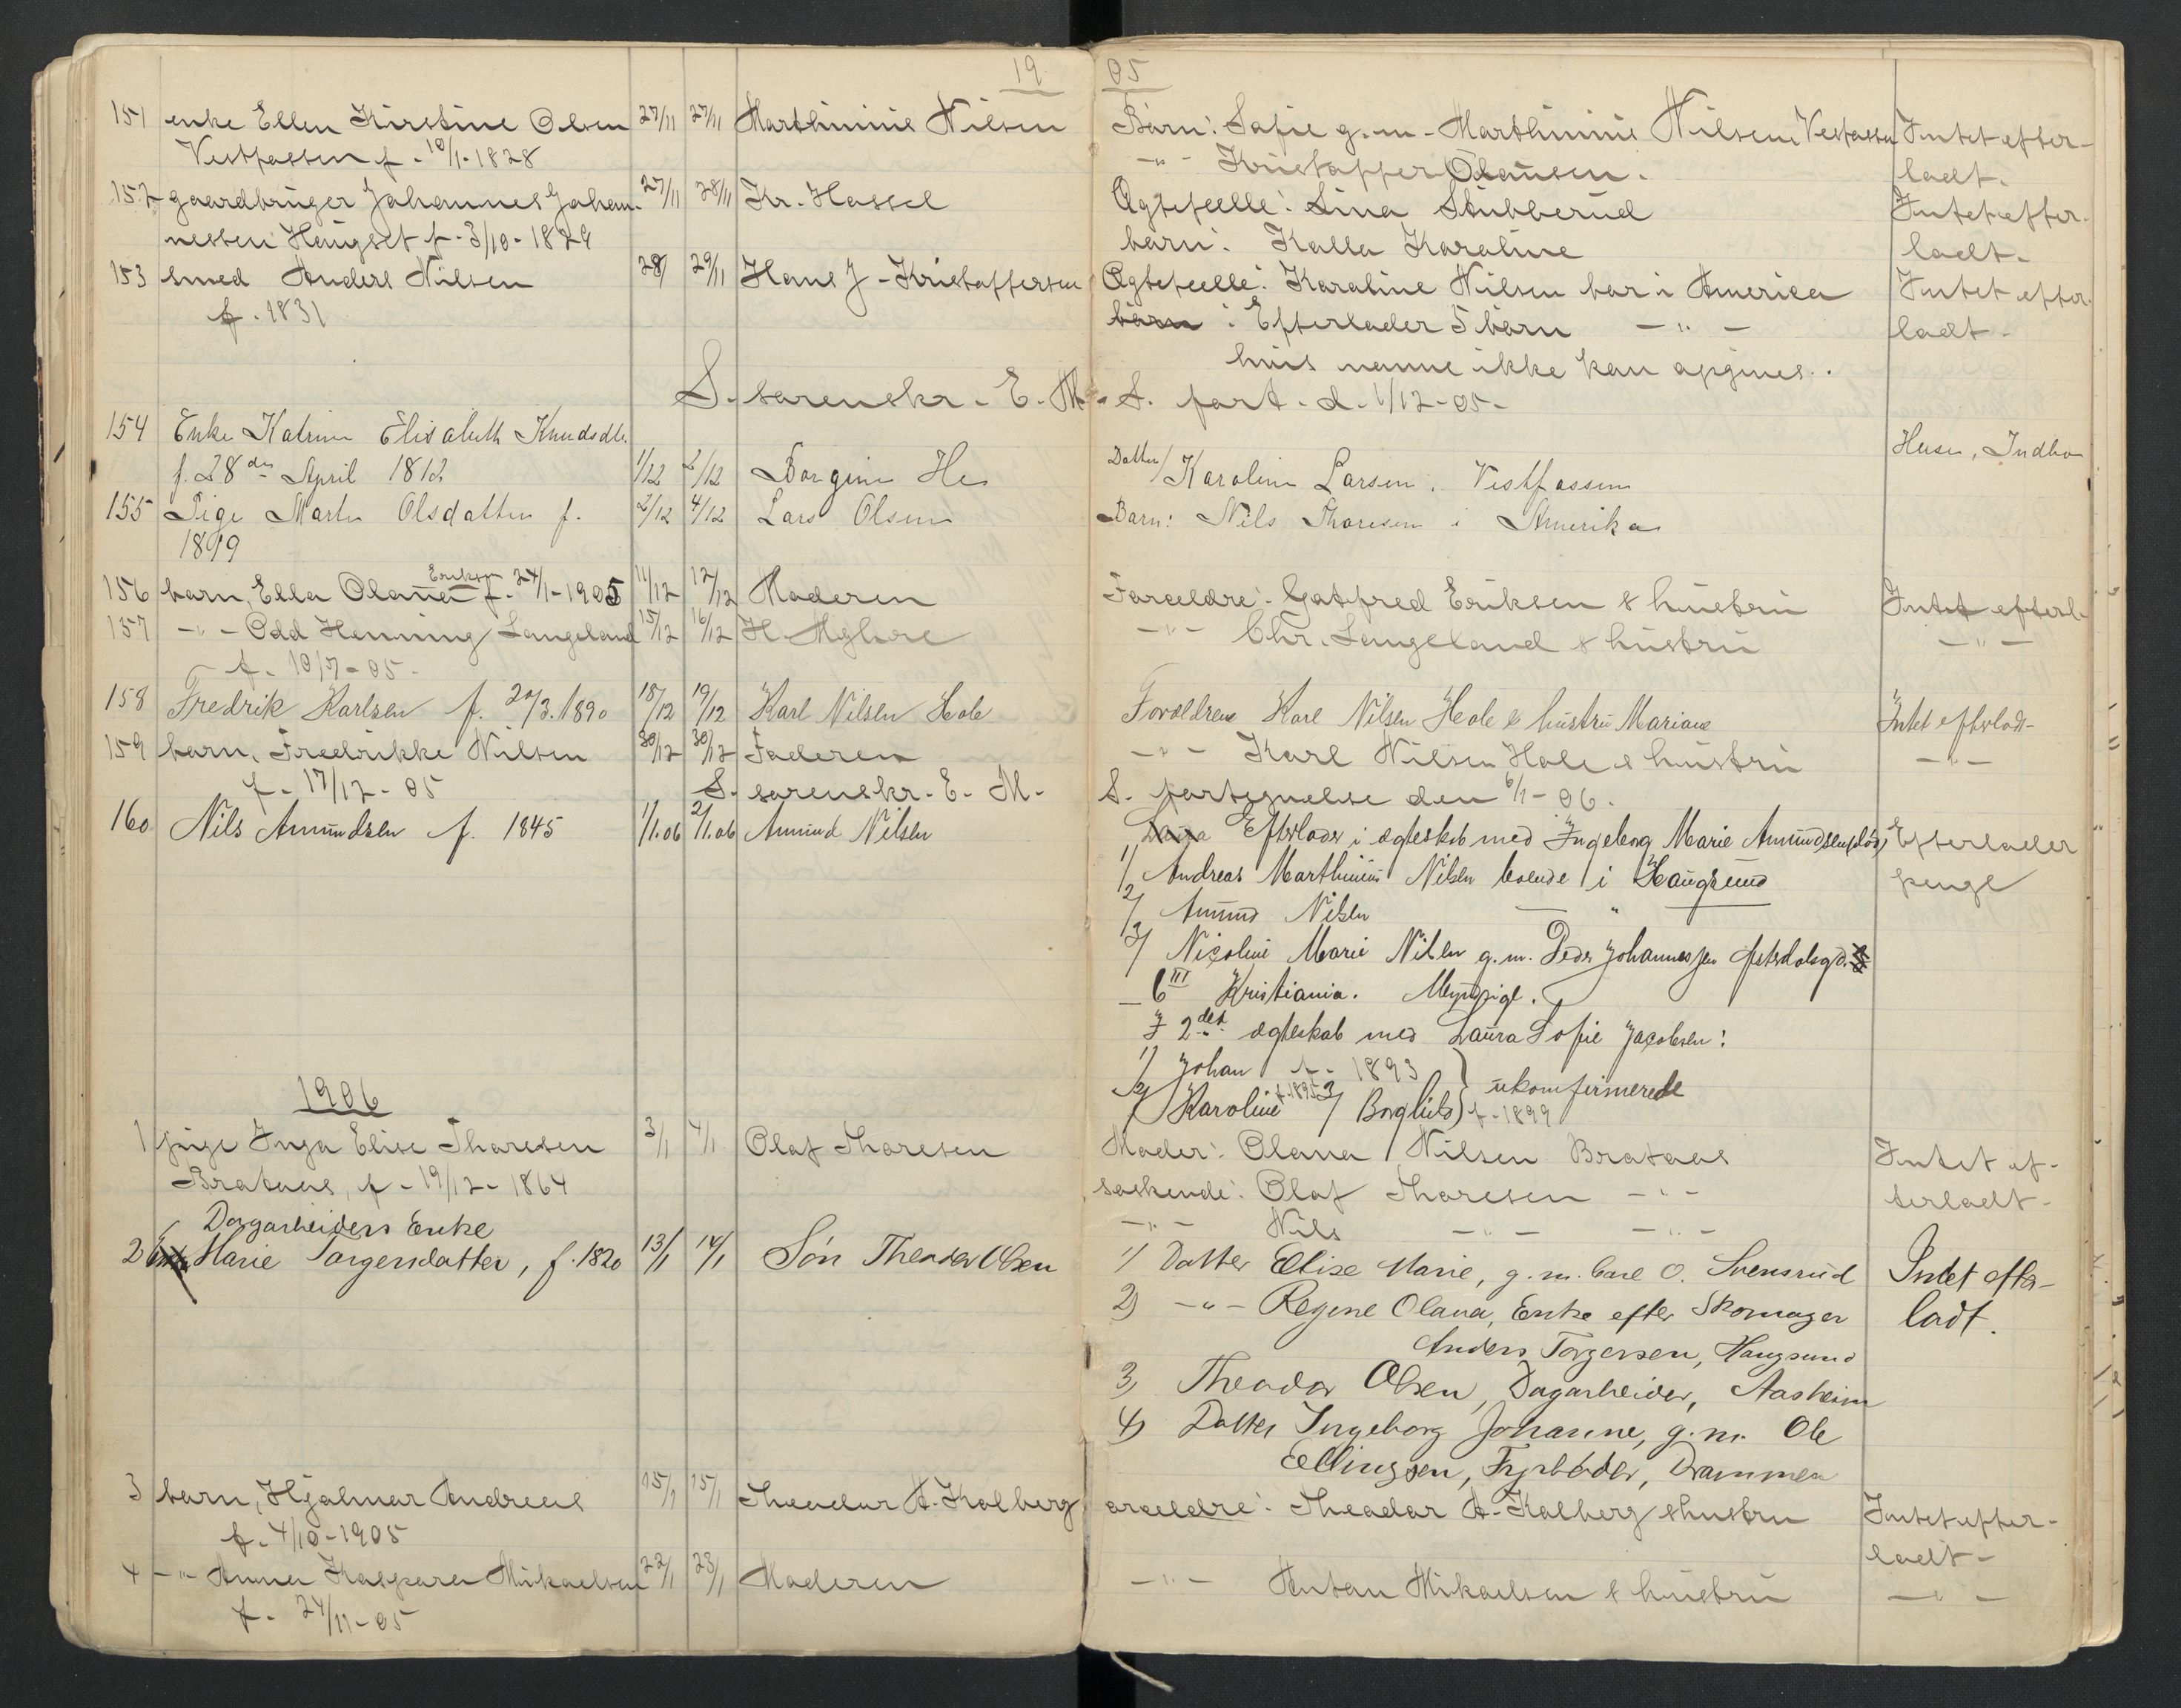 19 05
151 enke Ellen Kirstine Olsen 27/11 27/11 Marthinius Nilsen Børn: Sofie g.m. Marthinius Nilsen Vestfossen Intet efter-
Vestfossen f. 10/1-1828 -"- Kristoffer Olausen. ladt.
152 gaardbruger Johannes Johan- 27/11 28/11 Kr. Hassel Ægtefælle: Lina Stubberud Intet efter-
nessen Haugset f. 3/10-1829 barn: Kalla Karoline ladt.
153 smed Anders Nilsen 28/ 29/11 Hans J. Kristoffersen Ægtefælle: Karoline Nilsen bor i America Intet efter-
f. 1831 børn: Efterlader 5 børn -"- ladt-
hvis navne ikke kan opgives.
S. sorenskr. E. M. S. fort. d. 1/12-05-
154 Enke Katrine Elisabeth Knudsdtr. Huse, Indbo
f. 28de April 1812 1/12 2/12 Borgine He Datter/ Karoline Larsen. Vestfossen
155 Pige Marte Olsdatter f. 2/12 4/12 Lars Olsen Barn: Nils Thoresen i Amerika
1819
156 barn, Ella Olava Eriksen f. 24/1-1905 11/12 12/12 Moderen Forældre: Gotfred Eriksen & hustru Intet efterl-
157 -"- Odd Henning Langeland 15/12 16/12 H. Myhre -"- Chr. Langeland & hustru -"-
f. 10/7-05.
158 Fredrik Karlsen f. 20/3.1890 18/12 19/12 Karl Nilsen Hole Forældrene Karl Nilsen Hole & hustru Mariane Intet efterladt-
159 barn, Fredrikke Nilsen 30/12 30/12 Faderen -"- Karl Nilsen Hole & hustru -"-
f. 17/12-05 S. sorenskr. E. M. S. fortegnelse den 6/1-06.
160 Nils Amundsen f. 1845 1/1.06 2/1.06 Amund Nilsen Laura Efterlader i ægteskab med Ingeborg Marie Amundsen (død) Efterlader
1/ Andreas Marthinius Nilsen boende i Haugsund penge
2/ Amund Nilsen -"-
3/ Nicoline Marie Nilsen g.m. Peder Johannessen Østerdalsgd.
6 III Kristiania. Myndige.
I 2det ægteskab med Laura Sofie Jacobsen:
1/ Johan f. 1893
2/ Karoline f. 1895 3/ Borghild f-1899 } ukonfirmerede
1906
1 pige Inga Elise Thoresen 3/1 4/1 Olaf Thoresen Moder: Olava Nilsen Brataas Intet ef-
Brataas, f. 19/12-1864 søskende: Olaf Thoresen -"- terladt-
-"- Nils -"- -"-
Dagarbeiders Enke
2 Marie Torgersdatter, f. 1820 13/1 14/1 Søn Theodor Olsen 1) Datter Elise Marie, g.m. Carl O. Svensrud Intet efter-
2) -"- Regine Olava, Enke efter Skomager ladt.
Anders Torgersen, Haugsund
3) Theodor Olsen, Dagarbeider, Aasheim
4) Datter Ingeborg Johanne, g.m. Ole
Ellingsen, Fyrbøder, Drammen
3 barn, Hjalmar Andreas 15/1 15/1 Theodor A. Kolberg orældre: Theodor A. Kolberg & hustru Intet efter-
f. 4/10-1905 ladt-
4 -"- Anna Kaspara Mikaelsen 22/1 23/1 Moderen -"- Anton Mikaelsen & hustru -"-
f. 24/11-05